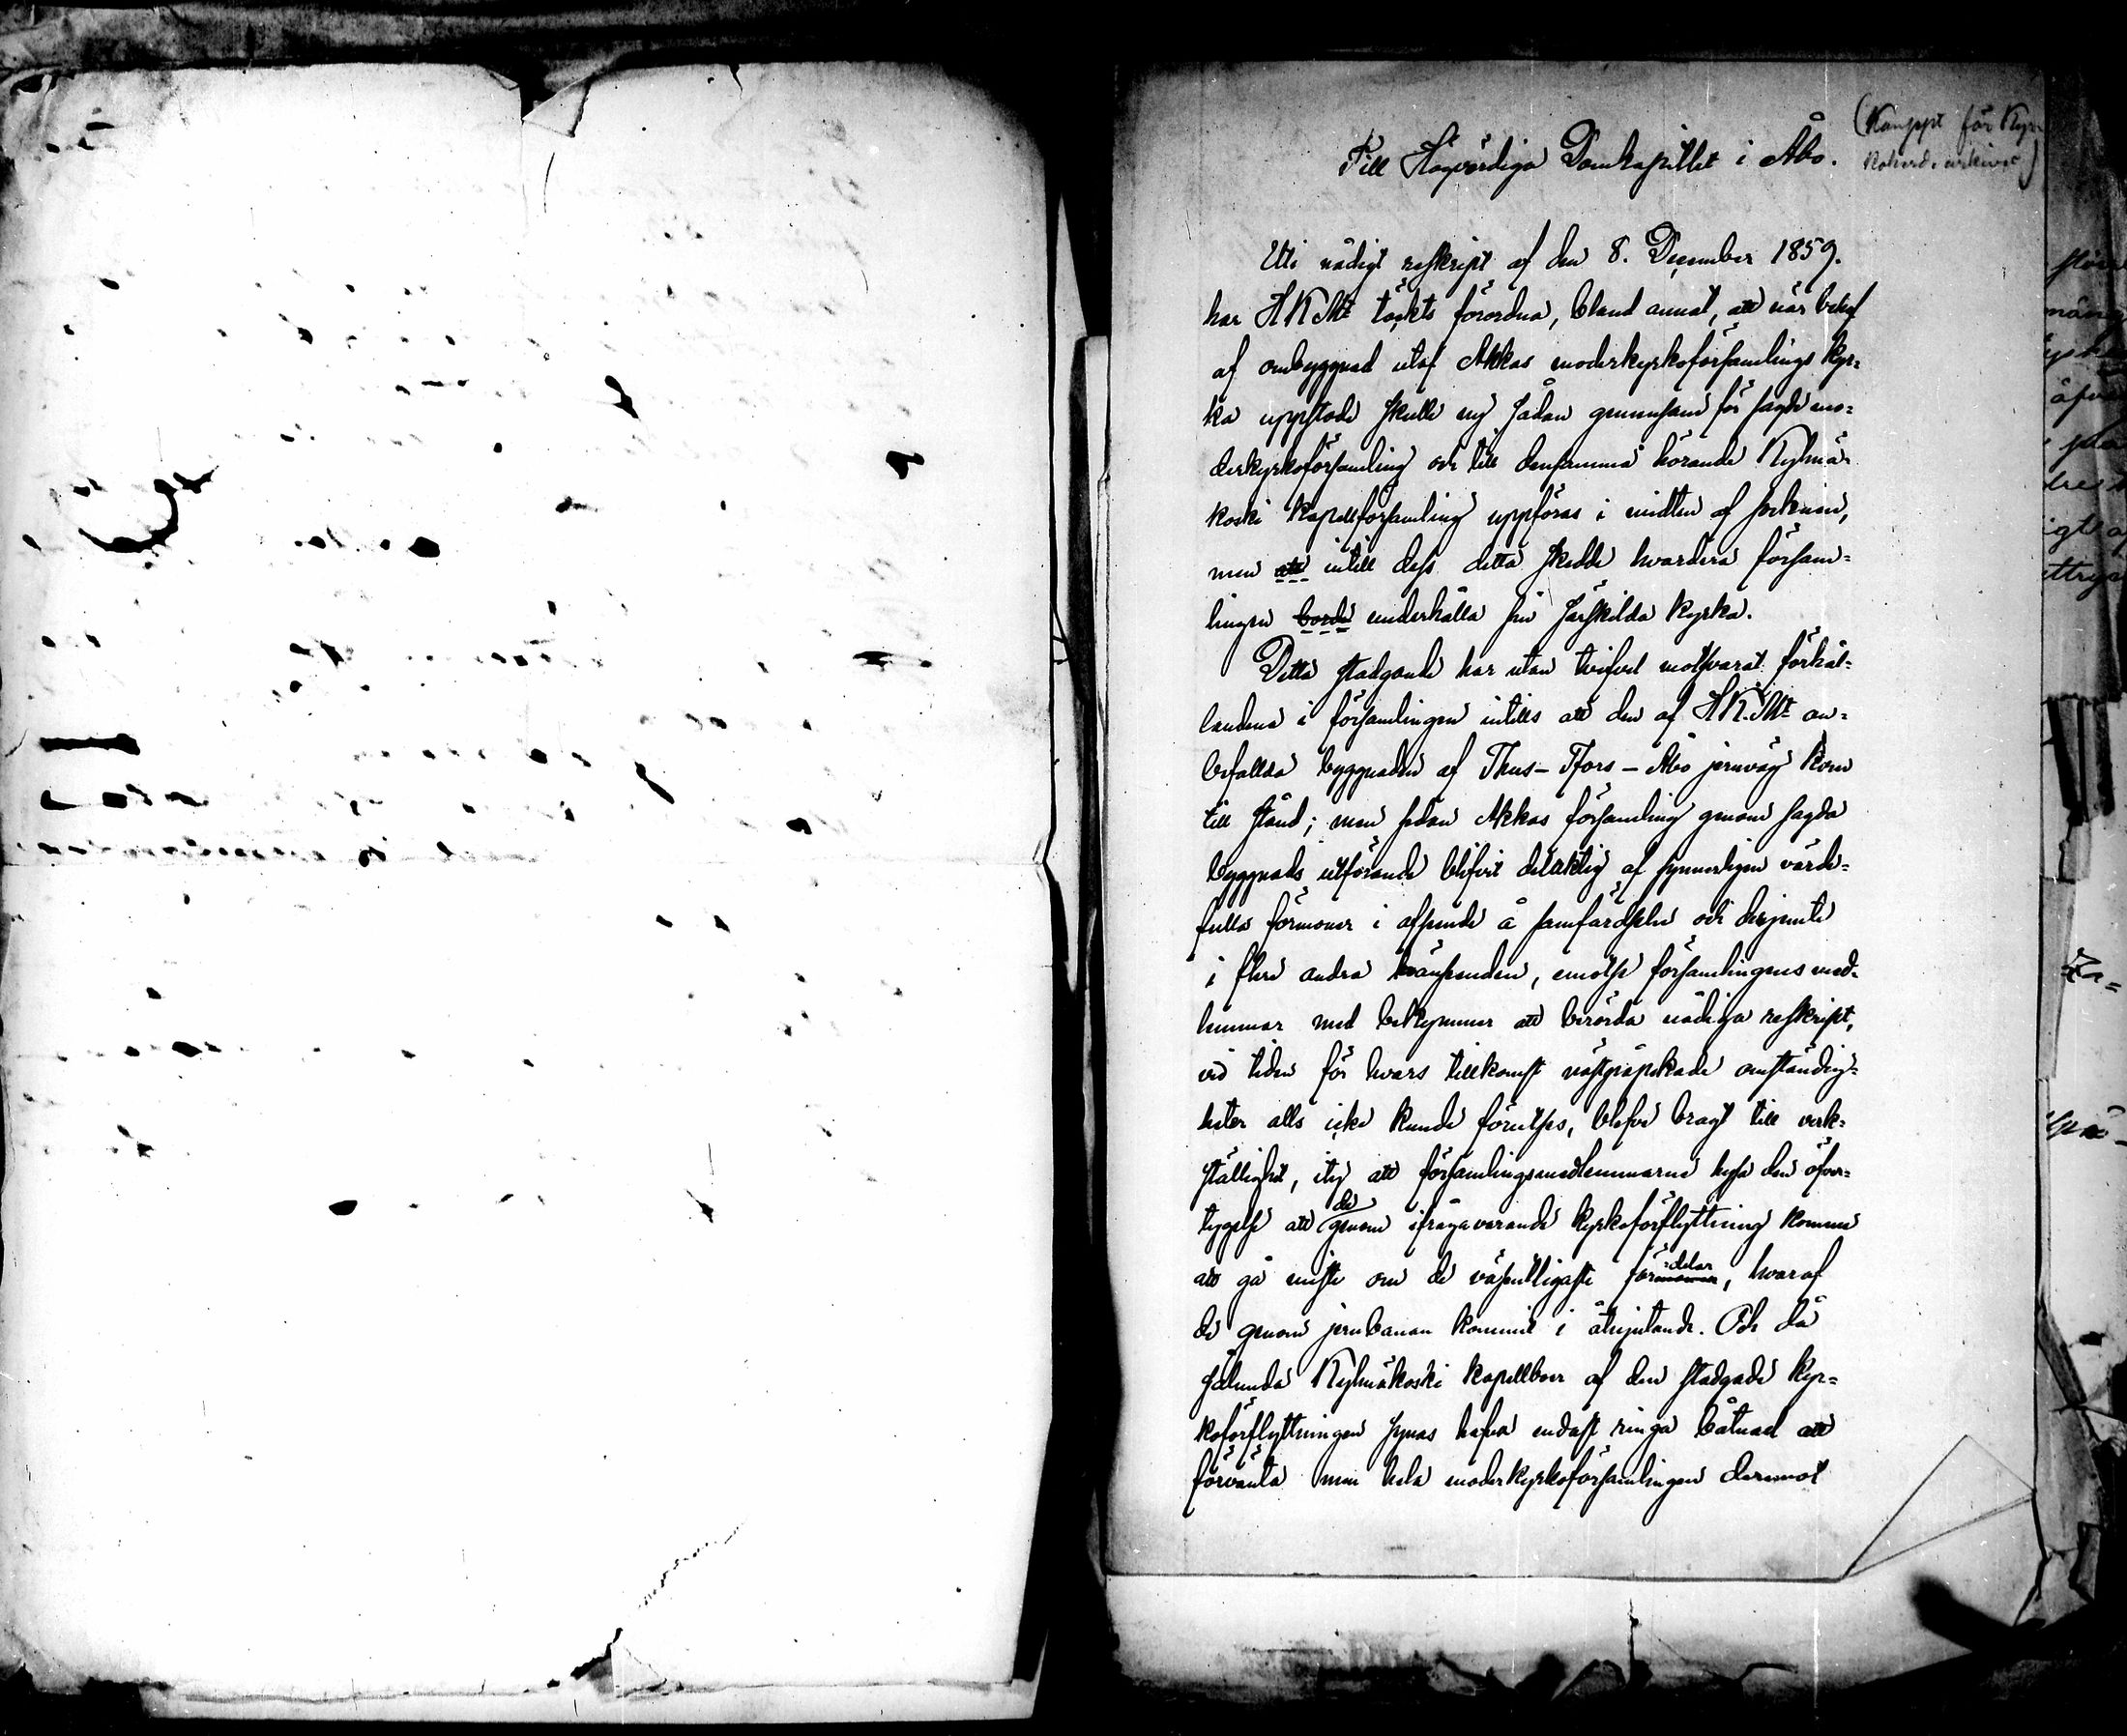 (Koncept för Kyr-
koherd. arkivet)
Till Högvördiga Domkapitlet i Åbo.
Uti nådigt reskript af den 8. December 1859.
har H K Mt täckts förordna, bland annat, att när behof
af ombyggnad utaf Akkas moderkyrkoförsamlings kyr=
ka uppstode skulle ny sådan gemensam för sagde mo=
derkyrkoförsamling och till densamma hörande Kylmä-
koski kapellförsamling uppföras i midten af socknen,
men att intill dess detta skedde hvardera försam=
lingen borde underhålla sin särskilda kyrka.
Detta stadgande har utan tvifvel motsvarat förhål=
landena i församlingen intills att den af H K. Mt an=
befallda byggnaden af Thus - Tfors - Åbo jernväg kom
till stånd; men sedan Akkas församling genom sagda
byggnads utförande blifvit delaktig af synnerligen värde=
fulla förmoner i afseende å samfärdseln och derjemte
i flere andra hänseenden, emotse församlingens med-
lemmar med bekymmer att berörda nådiga reskript,
vid tiden för hvars tillkomst nästpåpekade omständig=
heter alls icke kunde förutses, blefve bragt till verk=
ställighet, ity att församlingsmedlemmarne hysa den öfver=
tygelse att de genom ifrågavarande kyrkoförflyttning komme
att gå miste om de väsentligaste fördelar, hvaraf
de genom jernbanan kommit i åtnjutande. Och då
sålunda Kylmäkoski kapellboer af den stadgade kyr=
koförflyttningen synas hafva endast ringa båtnad att
förvänta men hela moderkyrkoförsamlingen deremot